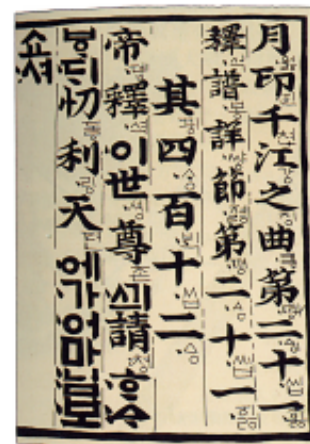 月ᅌᅯᇙ印ᅙᅵᆫ千쳔江강之징曲콕第똉二ᅀᅵᆼ十씹一ᅙᅵᇙ
釋셕譜봉詳썅節져ᇙ第똉二ᅀᅵᆼ十씹一ᅙᅵᇙ
其끵四ᄉᆞᆼ百ᄇᆡᆨ十씹二ᅀᅵᆼ
帝뎽釋셕이世솅尊존ᄭᅴ請쳥ᄒᆞᅀᆞ
ᄫᅩᄃᆡ忉도ᇢ利링天텬에가어마님보
쇼셔